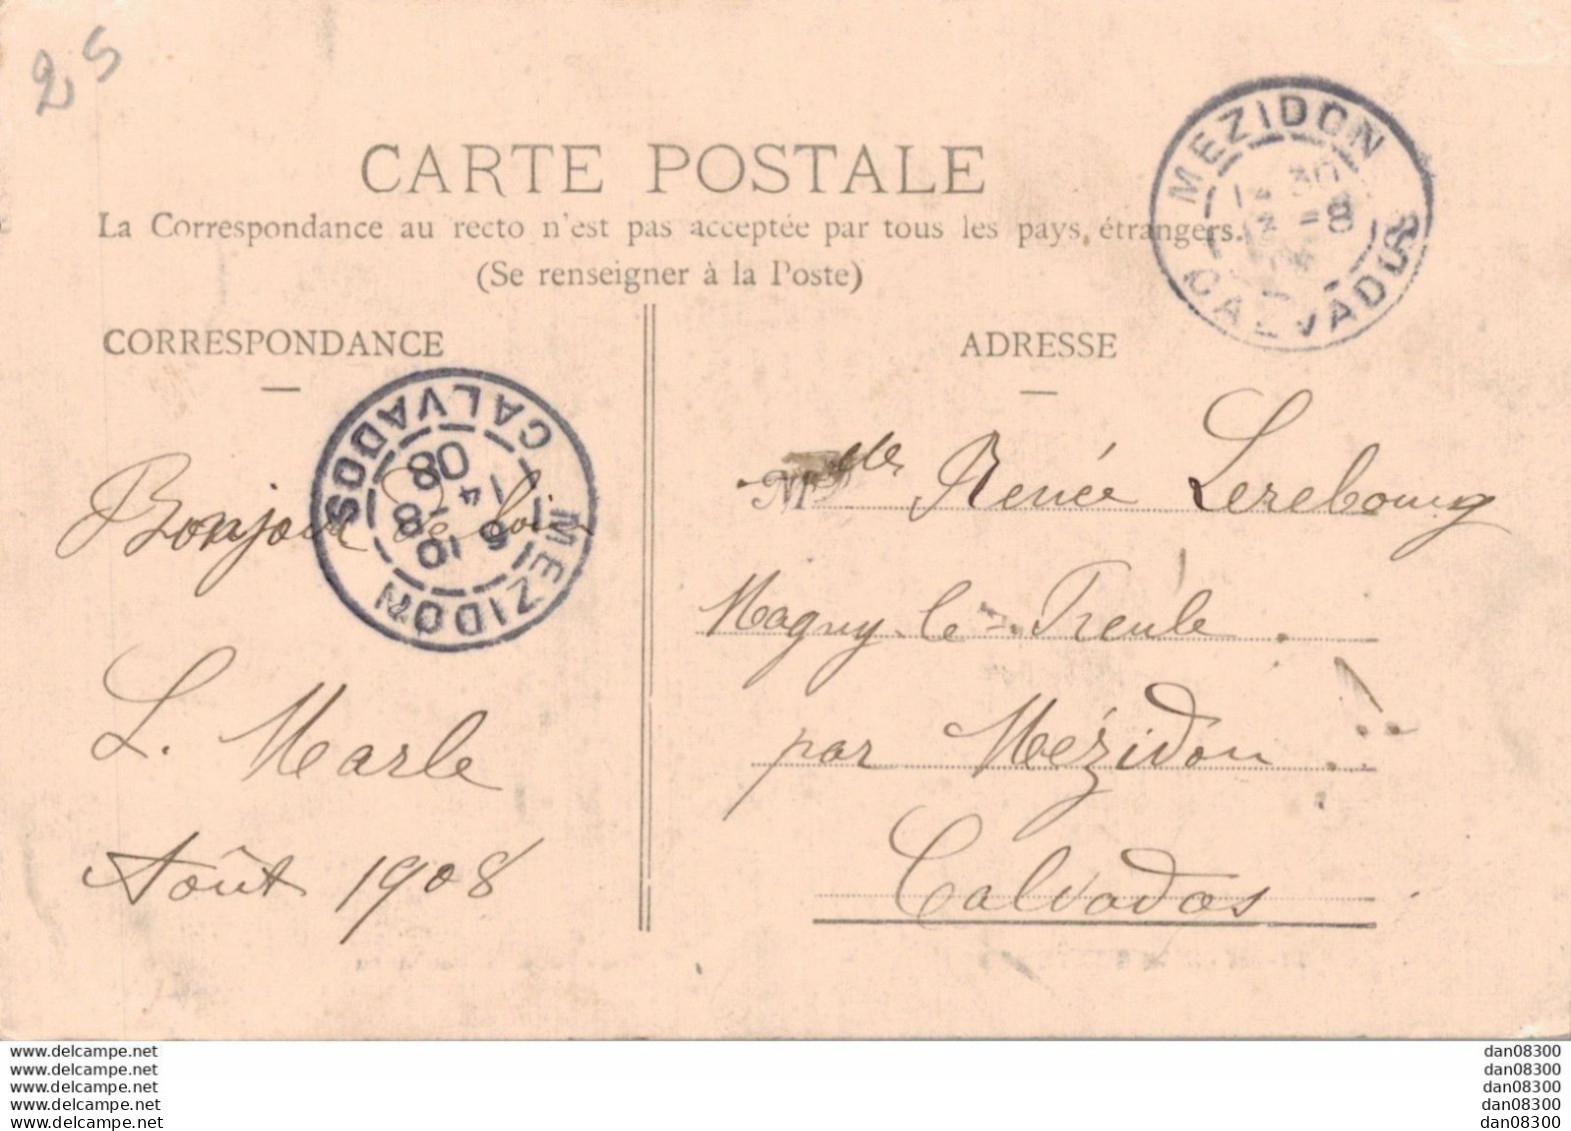 25
CARTE POSTALE
La Correspondance au recto n'est pas acceptée par tous les pays, étrangers.
(Se renseigner à la Poste)
MEZIDON
CALVADOS
CORRESPONDANCE
ADRESSE
MEZIDON
CALVADOS
08
Bonjour de loin
L. Marle
Août 1908
Melle Renée Lerebourg
Magny-le-Freule
par Mézidon
Calvados
www.delcampe.net
www.delcampe.net
www.delcampe.net
www.delcampe.net
www.delcampe.net
dan08300
dan08300
dan08300
dan08300
dan08300